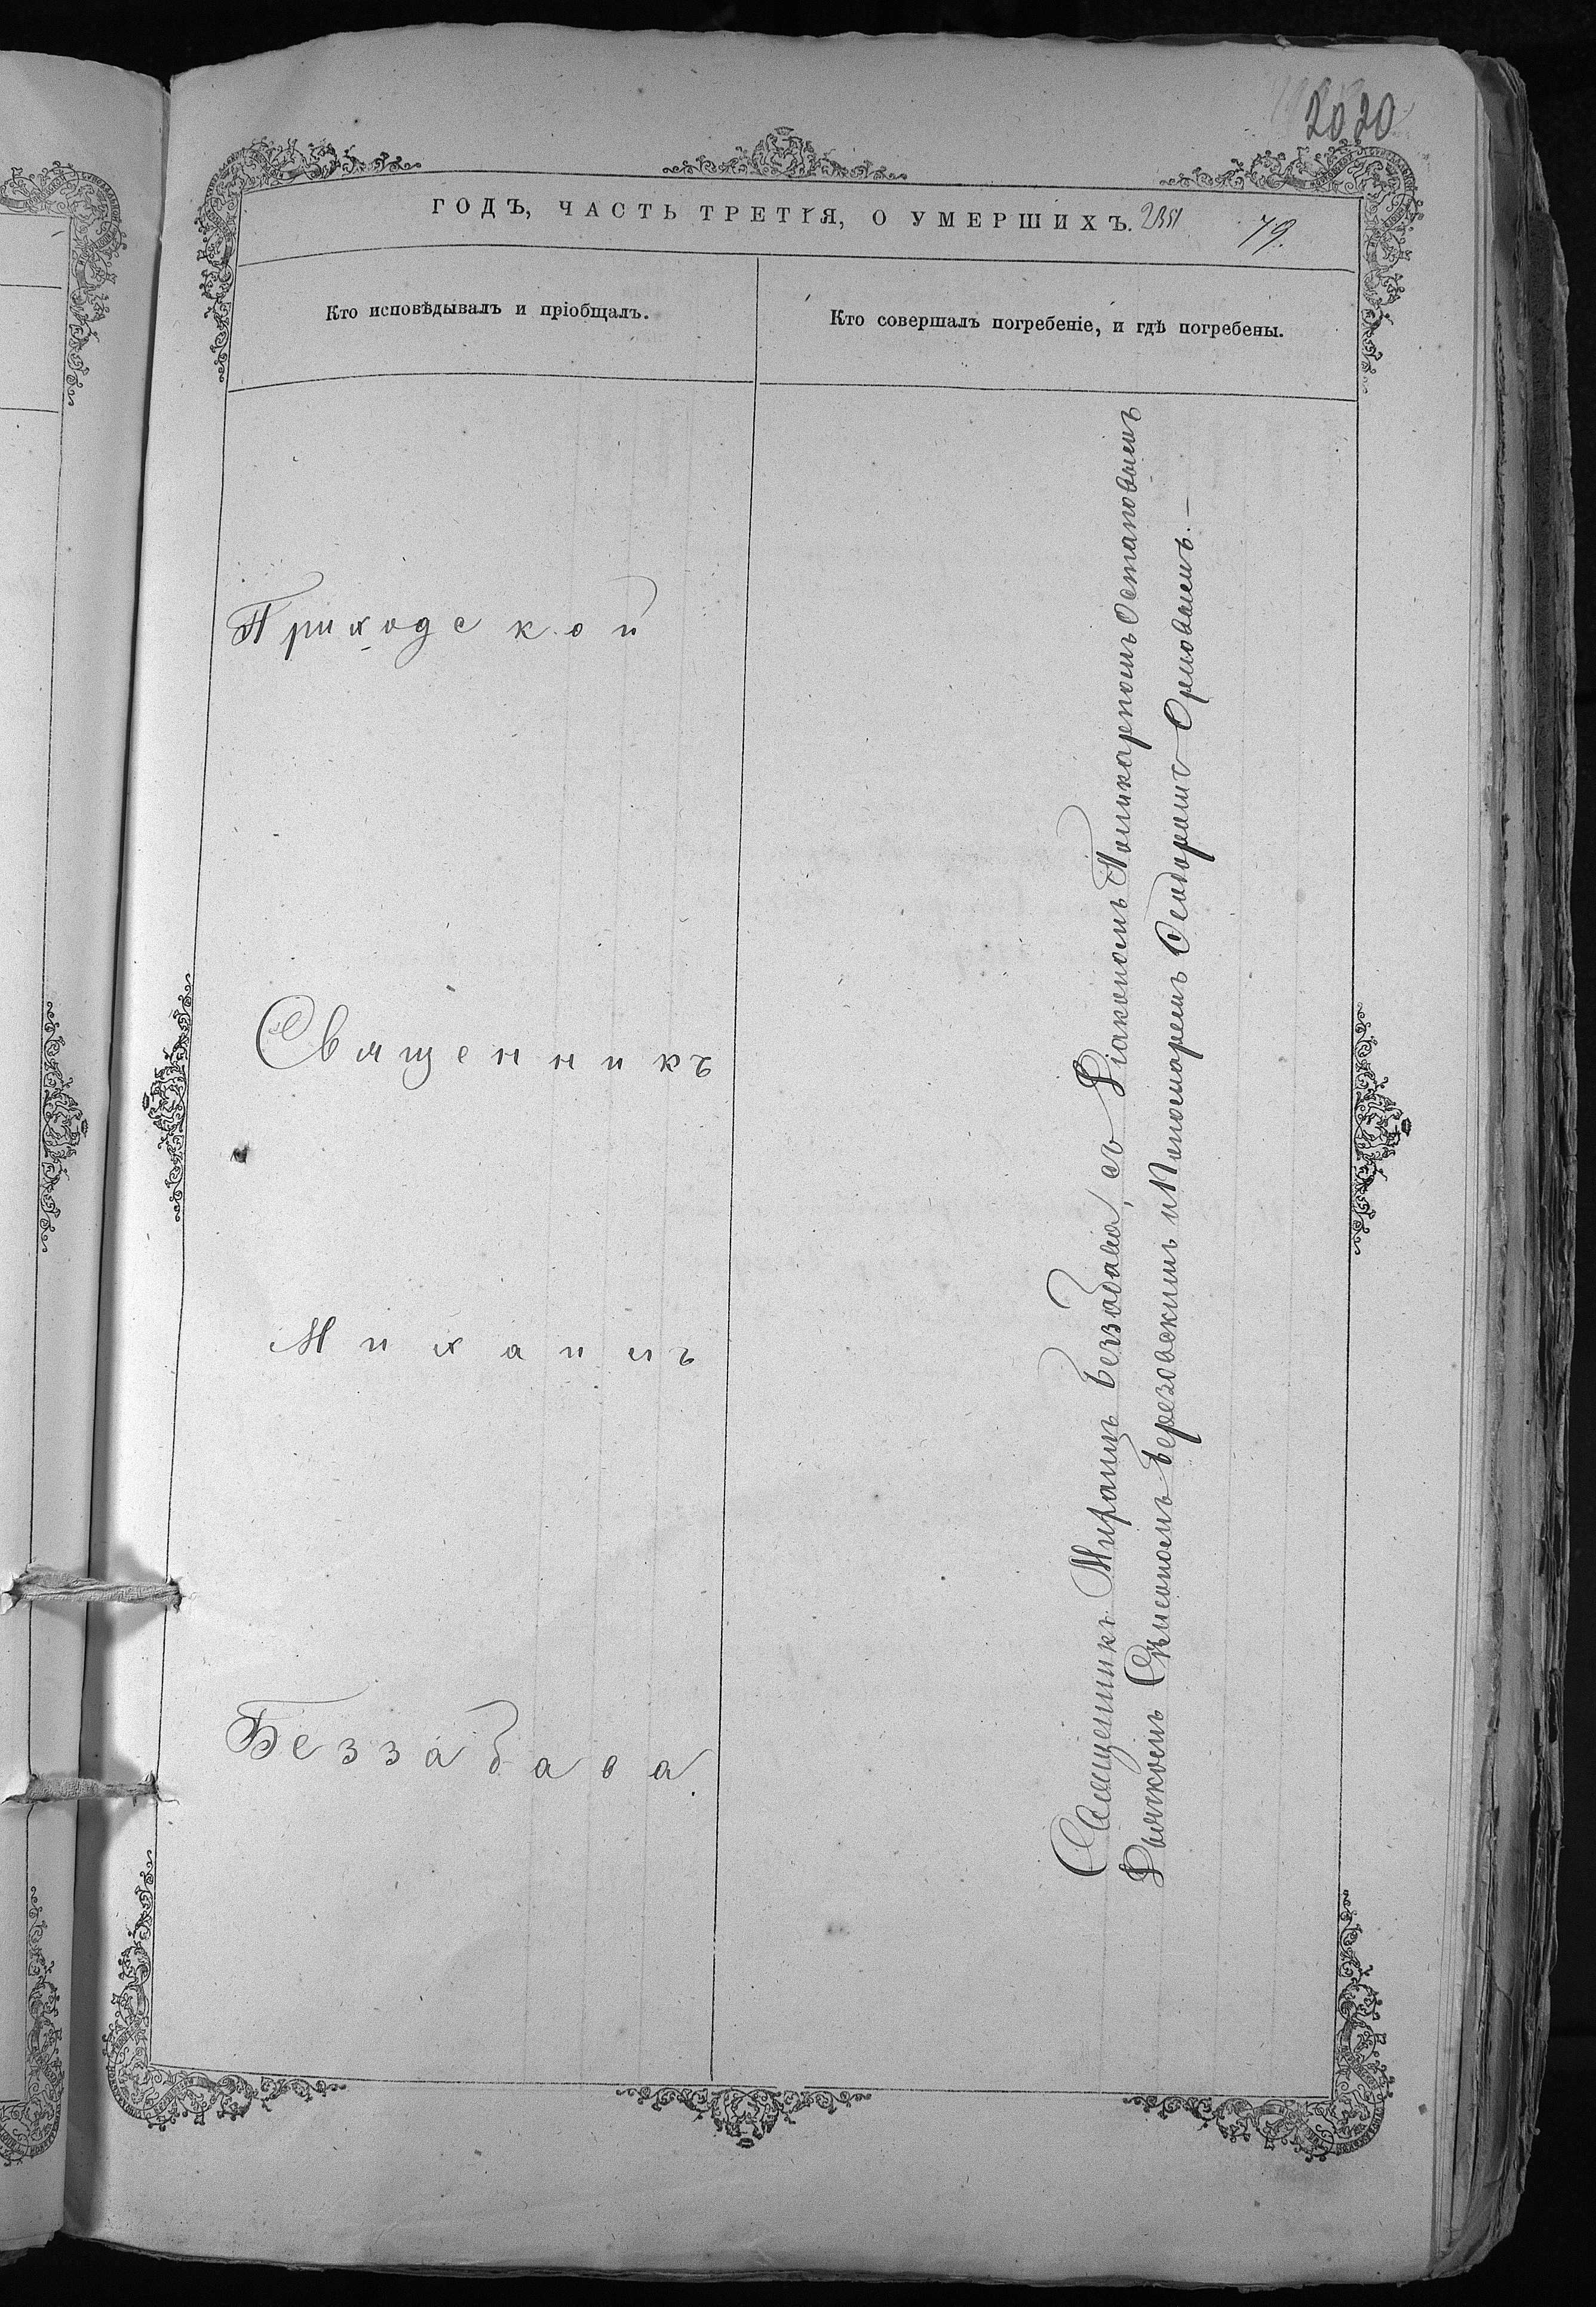 2020
ГОДЪ, ЧАСТЬ ТРЕТІЯ, О УМЕРШИХЪ.
79.
Кто исповѣдывалъ и пріобщалъ.
Кто совершалъ погребеніе, и гдѣ погребены.
Приходской
Священникъ
Михаилъ
Беззабава
Священникъ Михаилъ Беззабава, съ Діакономъ Поликарпомъ Остаповымъ
Дьячкомъ Сѵмеономъ Березовскимъ и Пономаремъ Ѳеодоромъ Орловымъ. —